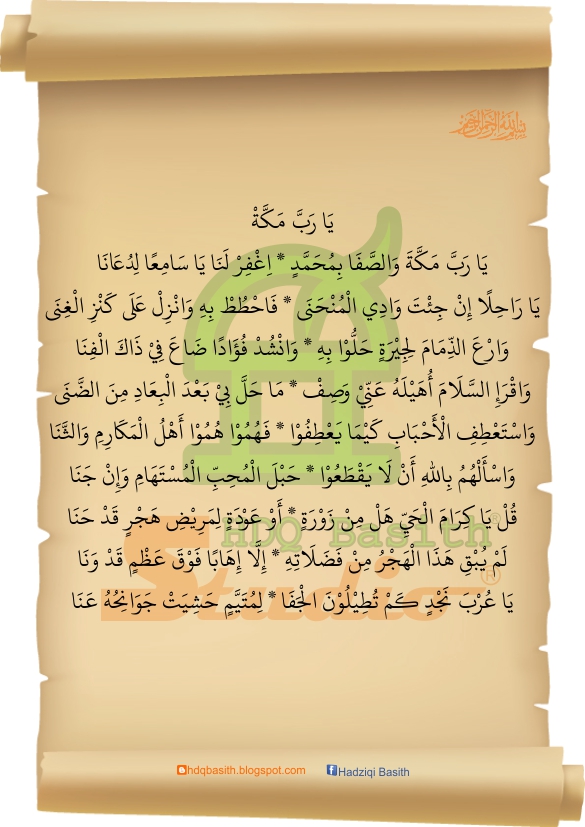 بسم الله الرحمن الرحيم
يَا رَبَّ مَكَّةْ
يَا رَبَّ مَكَّةَ وَالصَّفَا بِمُحَمَّدٍ * اِغْفِرْ لَنَا يَا سَامِعًا لِدُعَانَا
يَا رَاحِلًا إِنْ جِئْتَ وَادِي الْمُنْحَنَى * فَاحْطُطْ بِهِ وَانْزِلْ عَلَى كَنْزِ الْغِنَى
وَارْعَ الذِّمَامَ لِجِيْرَةٍ حَلُّوْا بِهِ * وَانْشُدْ فُؤَادًا ضَاعَ فِيْ ذَاكَ الْفِنَا
وَاقْرَإِ السَّلَامَ أُهَيْلَهُ عَنِّيْ وَصِفْ * مَا حَلَّ بِيْ بَعْدَ الْبِعَادِ مِنَ الضَّنَى
وَاسْتَعْطِفِ الْأَحْبَابِ كَيْمَا يَعْطِفُوْا * فَهُمُوْا هُمُوْا أَهْلُ الْمَكَارِمِ وَالثَّنَا
وَاسْأَلْهُمُ بِاللهِ أَنْ لَا يَقْطَعُوْا * حَبْلَ الْمُحِبِّ الْمُسْتَهَامِ وَإِنْ جَنَا
قُلْ يَا كِرَامَ الْحَيِّ هَلْ مِنْ زَوْرَةٍ * أَوْ عَوْدَةٍ لِمَرِيْضِ هَجْرٍ قَدْ حَنَا
لَمْ يُبْقِ هَذَا الْهَجْرُ مِنْ فَضَلَاتِهِ * إِلَّا إِهَابًا فَوْقَ عَظْمٍ قَدْ وَنَا
يَا عُرْبَ نَجْدٍ كَمْ تُطِيْلُوْنَ الْجَفَا * لِمُتَيَّمٍ حَشِيَتْ جَوَانِحُهُ عَنَا
HDQ Basith®
Studio®
hdqbasith.blogspot.com Hadziqi Basith